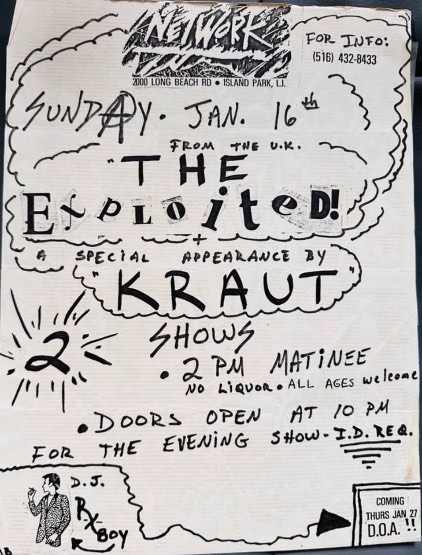 NETWORK
2000 LONG BEACH RD • ISLAND PARK, L.I.
FOR INFO:
(516) 432-8433
SUNDAY • JAN. 16th
FROM THE U.K.
"THE
ExpLoiteD!
+
A SPECIAL APPEARANCE BY
"KRAUT"
2 SHOWS
• 2 PM MATINEE
NO LIQUOR • ALL AGES welcome
• DOORS OPEN AT 10 PM
FOR THE EVENING SHOW - I.D. REQ.
D.J.
RX
BOY
COMING
THURS JAN 27
D.O.A. !!